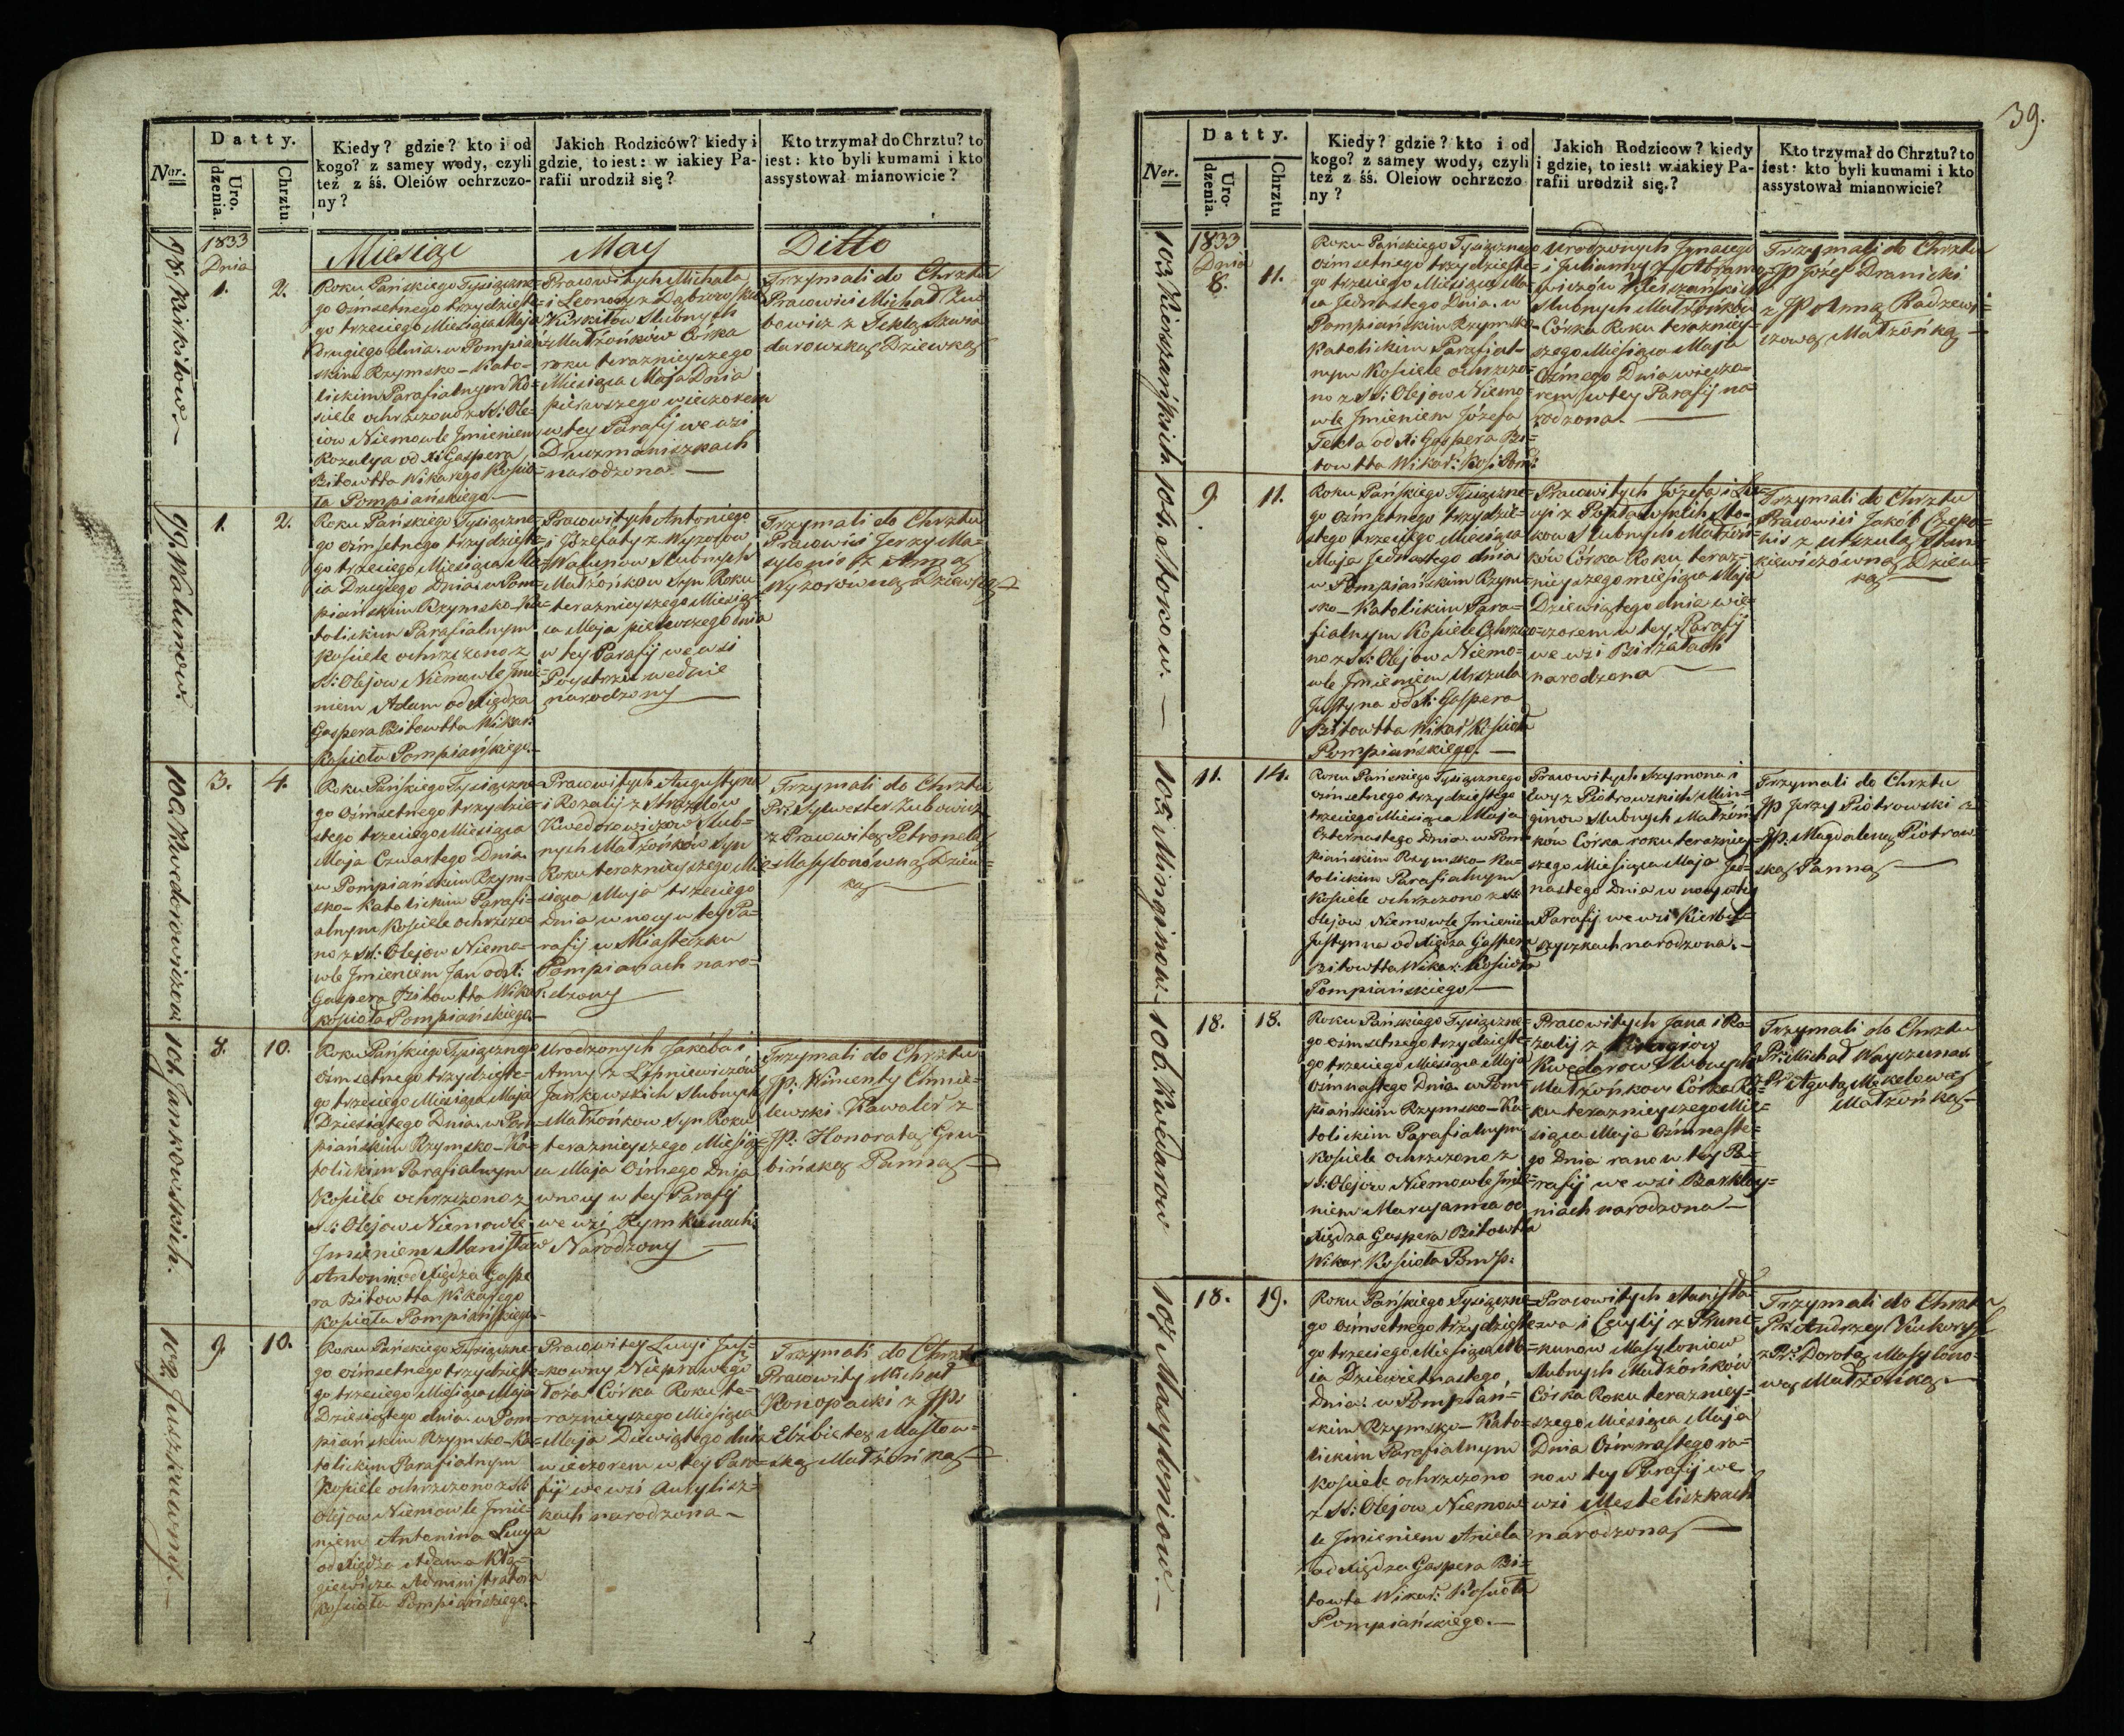 Nor.
Datty.
Uro.
dzenia.
Chrztu
Kiedy? gdzie? kto i od
kogo? z samey wody, czyli
też z śś. Oleiów ochrzczo-
ny?
Jakich Rodziców? kiedy i
gdzie, to iest: w iakiey Pa-
rafii urodził się?
Kto trzymał do Chrztu? to
iest: kto byli kumami i kto
assystował mianowicie?
1833
Dnia
Miesiąc May Ditto
98. Kirkiłow.
1.
2.
Roku Pańskiego Tysiączne-
go ośmsetnego trzydzieste-
go trzeciego Miesiąca Maja
drugiego dnia. w Pompiań-
skim Rzymsko-Kato-
lickim Parafialnym Ko-
ściele ochrzczono z SS: Ole-
iow Niemowle Jmieniem
Rozalya od X: Gaspera
Bitowtta Wikarego Kościo-
ła Pompiańskiego.
Pracowitych Michała
i Leonory z Dąbrowskich
Kirkiłow Slubnych
Małżonków Córka
roku teraznieyszego
Miesiąca Maja Dnia
pierwszego wieczorem
w tey Parafij we wsi
Druzmaniszkach
narodzona
Trzymali do Chrztu
Pracowici Michał
bowicz z Teklą
darowską Dziewką
99. Walunow.
1.
2.
Roku Pańskiego Tysiączne-
go ośmsetnego trzydzieste-
go trzeciego Miesiąca Ma-
ia Drugiego Dnia. w Pom-
piańskim Rzymsko-Ka-
tolickim Parafialnym
kościele ochrzczono z
SS: Olejow Niemowle Jmie-
niem Adam od Xiędza
Gaspera Bitowtta Wikar:
kościoła Pompiańskiego.
Pracowitych Antoniego
i Józefaty z Wyzorow
Walunow Slubnych
Małżonkow Syn Roku
teraznieyszego Miesią-
ca Maja pierwszego dnia
w tey Parafij we wsi
narodzony
Trzymali do Chrztu
Pracowici Jerzy Ma-
sylonis z Anną
Wyzorowną Dziewką
100. Kwedorowiczow
3.
4.
Roku Pańskiego Tysiączne-
go Ośmsetnego trzydzie-
stego trzeciego Miesiąca
Maja Czwartego Dnia.
w Pompiańskim Rzym-
sko-Katolickim Parafi-
alnym Kościele ochrzczo-
no z SS: Olejow Niemo-
wle Jmieniem Jan od X:
Gaspera Bitowtta Wikar:
kościoła Pompiańskiego.
Pracowitych Augustyna
i Rozalij z Strazdow
Kwedorowiczow Slub-
nych Małżonkow Syn
Roku teraznieyszego Mie-
siąca Maja trzeciego
Dnia w nocy w tey Pa-
rafij w Miasteczku
Pompianach naro-
dzony
Trzymali do Chrztu
Pr: Sylwester Zubowicz
z Pracowitą Petronelą
Masylonówną Dziew-
ką
101. Jankowskich.
8.
10.
Roku Pańskiego Tysiącznego
Ośmsetnego trzydzieste-
go trzeciego Miesiąca Maja
Dziesiątego Dnia. w Pom-
piańskim Rzymsko-Ka-
tolickim Parafialnym
Kościele ochrzczono z
SS: Olejow Niemowle
Jmieniem Stanisław
Antoni od Xiędza Gaspe-
ra Bitowtta Wikarego
kościoła Pompiańskiego.
Urodzonych Jakóba i
Anny z Liśniewiczów
Jankowskich Slubnych
Małżonkow Syn Roku
teraznieyszego Miesią-
ca Maja Ośmego Dnia
w nocy w tey Parafij
we wsi Rymkunach
Narodzony
Trzymali do Chrztu
JP: Wincenty Chmie-
lewski Kawaler z
JP: Honoratą Gru-
bińską Panną
102. Juszkuwny.
9.
10.
Roku Pańskiego Tysiączne-
go ośmsetnego trzydzieste-
go trzeciego Miesiąca Maja
Dziesiątego dnia. w Pom-
piańskim Rzymsko-Ka-
tolickim Parafialnym
Kościele ochrzczono z SS:
Olejow Niemowle Jmie-
niem Antonina Lucya
od Xiędza Adama
giewicza Administratora
Kościoła Pompiańskiego.
Pracowitey Lucyi Jusz-
kowny Nieprawego
Łoża Córka Roku te-
raznieyszego Miesiąca
Maja Dziewiątego dnia
wieczorem w tey Para-
fij we wsi
kach narodzona
Trzymali do Chrztu
Pracowity Michał
Konopacki z JP:
Elżbietą Masłow-
ską Małżonką
39.
Ner.
Datty.
Uro-
dzenia.
Chrztu
Kiedy? gdzie? kto i od
kogo? z samey wody, czyli
też z śś. Oleiow ochrzczo
ny?
Jakich Rodzicow? kiedy
i gdzie, to iest: w iakiey Pa-
rafii urodził się?
Kto trzymał do Chrztu? to
iest: kto byli kumami i kto
assystował mianowicie?
1833
Dnia
103. Kierszańskich
8.
11.
Roku Pańskiego Tysiącznego
ośmsetnego trzydzieste-
go trzeciego Miesiąca Ma-
ia Jednastego Dnia. w
Pompiańskim Rzymsko-
Katolickim Parafial-
nym Kościele ochrzczo-
no z SS: Olejow Niemo-
wle Jmieniem Józefa
Tekla od X: Gaspera Bi-
towtta Wikar: Koś: Pom:
Urodzonych Jgnacego
i Julianny z Abramo-
wiczów Kierszańskich
Slubnych Małżonków
Córka Roku terazniey-
szego Miesiąca Maja
Ośmego Dnia wieczo-
rem w tey Parafij na-
rodzona.
Trzymali do Chrztu
JP Jozef Dranicki
z JP Anną Radzewi-
czową Małżonką
104. Stokow.
9.
11.
Roku Pańskiego Tysiączne-
go Ośmsetnego trzydzie-
stego trzeciego Miesiąca
Maja Jednastego dnia
w Pompiańskim Rzym-
sko-Katolickim Para-
fialnym Kościele Ochrzczo-
no z SS: Olejow Niemo-
wle Jmieniem Urszula
Justyna od X: Gaspera
Bitowtta Wikar: Kościoła
Pompiańskiego.
Pracowitych Józefa i
z Sto-
kow Slubnych Małżon-
ków Córka Roku teraz-
nieyszego miesiąca Maja
Dziewiątego dnia wie-
czorem w tey Parafij
we wsi Birżalach
narodzona
Trzymali do Chrztu
Pracowici Jakób
z Urszulą
kiewiczówną Dziew-
ką
105. Minginow
11.
14.
Roku Pańskiego Tysiącznego
ośmsetnego trzydziestego
trzeciego Miesiąca Maja
Czternastego Dnia. w Pom-
piańskim Rzymsko-Ka-
tolickim Parafialnym
Kościele ochrzczono z SS:
Olejow Niemowle Jmieniem
Justynna od Xiędza Gaspera
Bitowtta Wikar: Kościoła
Pompiańskiego
Pracowitych Szymona i
Ewy z Piotrowskich Min-
ginow Slubnych Małżon-
ków Córka roku terazniey-
szego Miesiąca Maja Jed-
nastego Dnia w nocy w tey
Parafij we wsi
szyszkach narodzona.
Trzymali do Chrztu
JP Jerzy Piotrowski z
JP: Magdaleną Piotrow-
ską Panną
106. Kwedarow
18.
18.
Roku Pańskiego Tysiączne-
go ośmsetnego trzydzieste-
go trzeciego Miesiąca Maja
Ośmnastego Dnia w Pom-
piańskim Rzymsko-Ka-
tolickim Parafialnym
Kościele ochrzczono z
SS: Olejow Niemowle Jmie-
niem Maryanna od
Xiędza Gaspera Bitowtta
Wikar: Kościoła Pomp:
Pracowitych Jana i Ro-
zalij z
Kwedarow Slubnych
Małżonkow Córka Ro-
ku teraznieyszego Mie-
siąca Maja Ośmnaste-
go Dnia rano w tey Pa-
rafij we wsi Barkley-
niach narodzona
Trzymali do Chrztu
Pr: Michał Wayczunas
z Pr: Agatą Mikelową
Małżonką
107 Masyloniow.
18.
19.
Roku Pańskiego Tysiączne-
go ośmsetnego trzydzieste-
go trzeciego Miesiąca Ma-
ia Dziewietnastego
Dnia: w Pompiań-
skim Rzymsko-Kato-
lickim Parafialnym
Kościele ochrzczono
z SS: Olejow Niemow-
le Jmieniem Aniela
od Xiędza Gaspera Bi-
towta Wikar: Kościoła
Pompiańskiego.
Pracowitych Stanisła-
wa i Cecylij z
kunow Masyloniow
Slubnych Małżonków
Córka Roku terazniey-
szego Miesiąca Maja
Dnia Ośmnastego ra-
no w tey Parafij we
wsi Mesteliszkach
narodzona
Trzymali do Chrztu
Pr: Andrzey
z Pr: Dorotą Masylono-
wą Małżonką